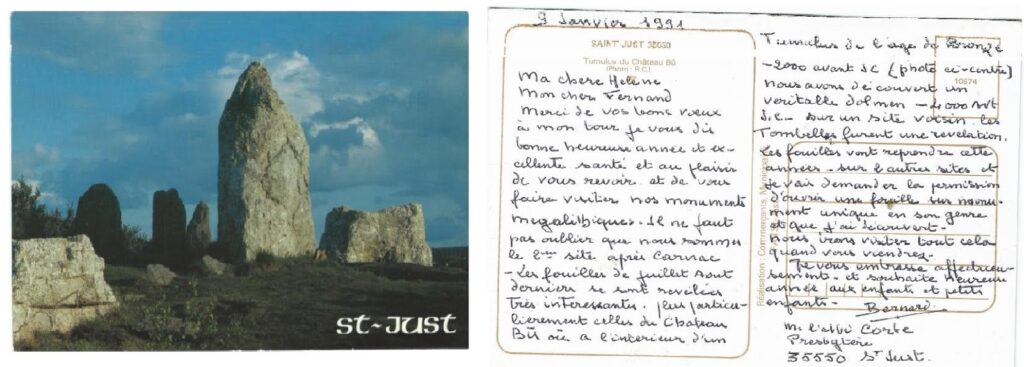 ST-JUST
9 Janvier 1991
SAINT JUST 35550
Tumulus du Château Bû
(Photo : R.C.)
Ma chere Helene
Mon cher Fernand
Merci de vos bons vœux
à mon tour je vous dis
bonne heureuse année et ex-
cellente santé et au plaisir
de vous revoir. et de vous
faire visiter nos monuments
megalithiques. Il ne faut
pas oublier que nous sommes
le 2eme site après Carnac
- Les fouilles de juillet Aout
derniers se sont revelées
très interessantes. plus particu-
lièrement celles du Chateau
Bû où à l'interieur d'un
Tumulus de l'age de Bronze
-2000 avant JC (photo ci-contre)
nous avons découvert un
veritable dolmen - 4000 avt
J.C. - sur un site voisin les
Tombelles furent une revelation.
Les fouilles vont reprendre cette
année - sur d'autres sites et
je vais demander la permission
d'ouvrir une fouille sur monu-
ment unique en son genre
et que j'ai découvert -
nous irons visiter tout cela
quand vous viendrez -
Je vous embrasse affectueu-
sement - et souhaite heureuse
année aux enfants et petits
enfants -
Bernard
Mr l'abbé Corbe
Presbytère
35550 St Just.
10674
Réalisation : Commerçants,